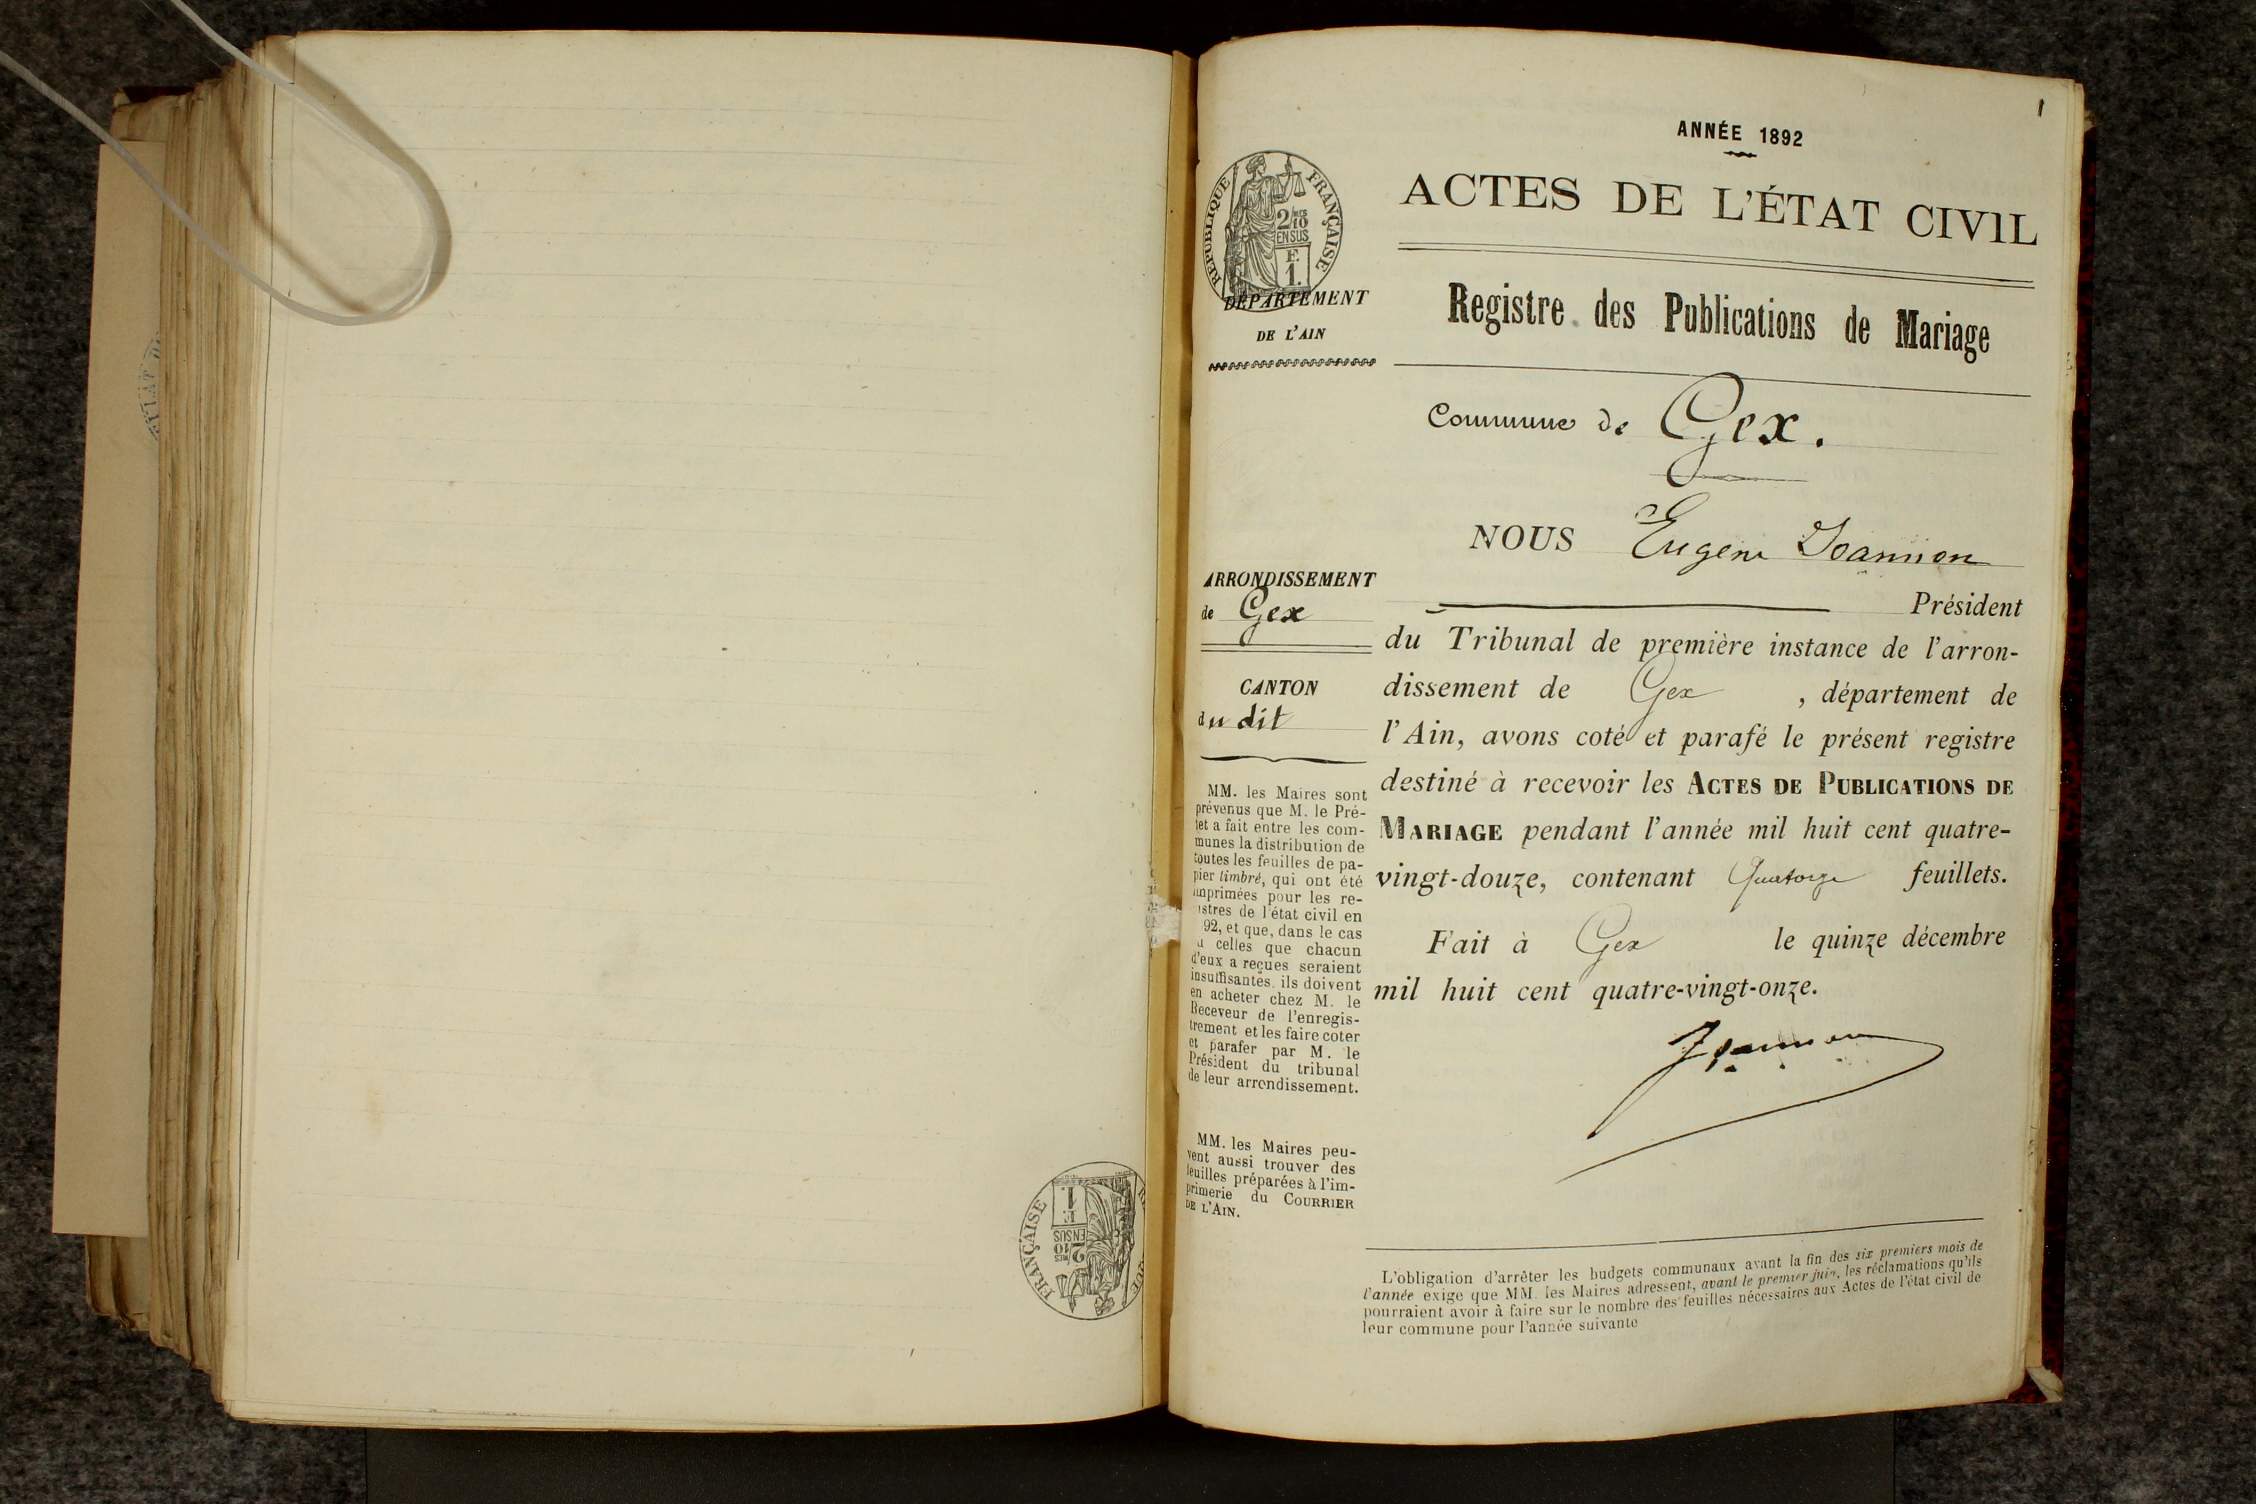 1
ANNÉE 1892
ACTES DE L'ÉTAT CIVIL
Registre des Publications de Mariage
Commune de Gex.
RÉPUBLIQUE FRANÇAISE
2/10 MES
EN SUS
F.
1.
DÉPARTEMENT
DE L'AIN
ARRONDISSEMENT
de Gex
CANTON
du dit
MM. les Maires sont
prévenus que M. le Pré-
fet a fait entre les com-
munes la distribution de
toutes les feuilles de pa-
pier timbré, qui ont été
imprimées pour les re-
istres de l'état civil en
92, et que, dans le cas
celles que chacun
d'eux a reçues seraient
insuffisantes, ils doivent
en acheter chez M. le
Receveur de l'enregis-
trement et les faire coter
et parafer par M. le
Président du tribunal
de leur arrondissement.
MM. les Maires peu-
vent aussi trouver des
feuilles préparées à l'im-
primerie du COURRIER
DE L'AIN.
NOUS Eugène Joannon
Président
du Tribunal de première instance de l'arron-
dissement de Gex , département de
l'Ain, avons coté et parafé le présent registre
destiné à recevoir les ACTES DE PUBLICATIONS DE
MARIAGE pendant l'année mil huit cent quatre-
vingt-douze, contenant Quatorze feuillets.
Fait à Gex le quinze décembre
mil huit cent quatre-vingt-onze.
Joannon
L'obligation d'arrêter les budgets communaux avant la fin des six premiers mois de
l'année exige que MM. les Maires adressent, avant le premier juin, les réclamations qu'ils
pourraient avoir à faire sur le nombre des feuilles nécessaires aux Actes de l'état civil de
leur commune pour l'année suivante
FRANÇAISE
2/10 MES
EN SUS
F.
1.